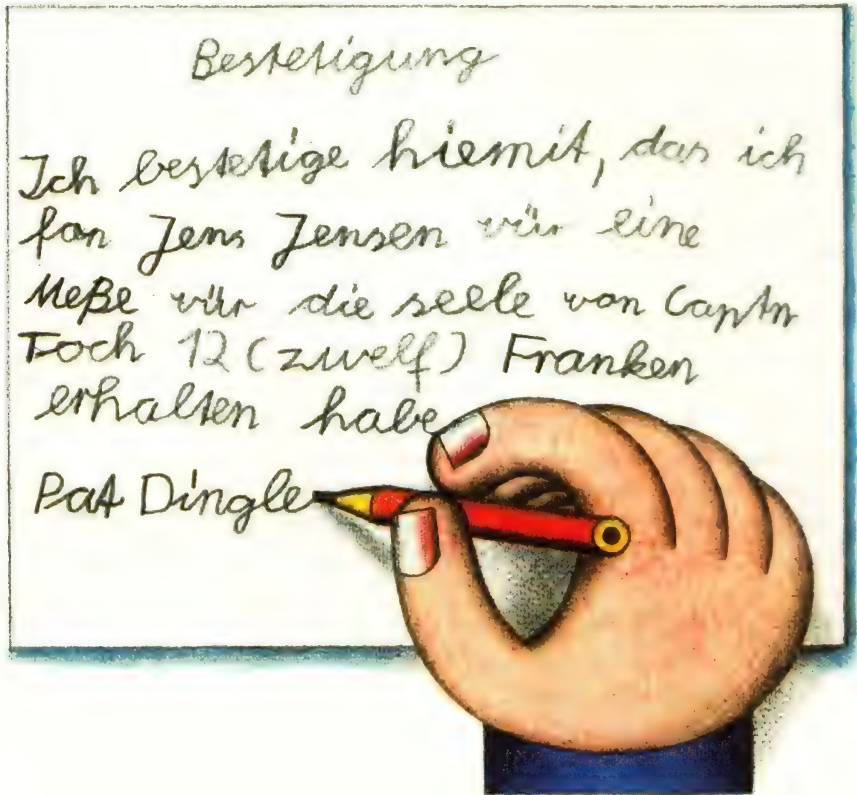 Bestetigung
Ich bestetige hiemit, das ich
fon Jens Jensen vür eine
Meße vür die seele von Captn
Foch 12 (zwelf) Franken
erhalten habe
Pat Dingle